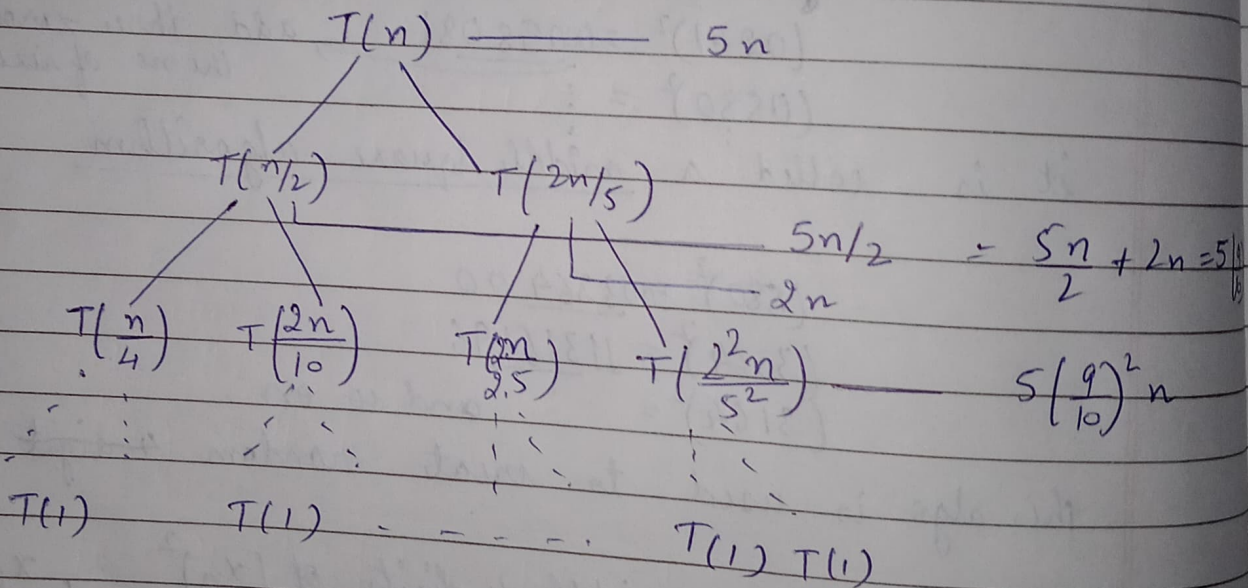 T(n) 5n
T(n/2) T(2n/5)
5n/2 = 5n/2 + 2n = 5
2n
T(n/4) T(2n/10) T(2n/2.5) T(2²n/5²) 5(9/10)²n
T(1) T(1) - - - . . T(1) T(1)